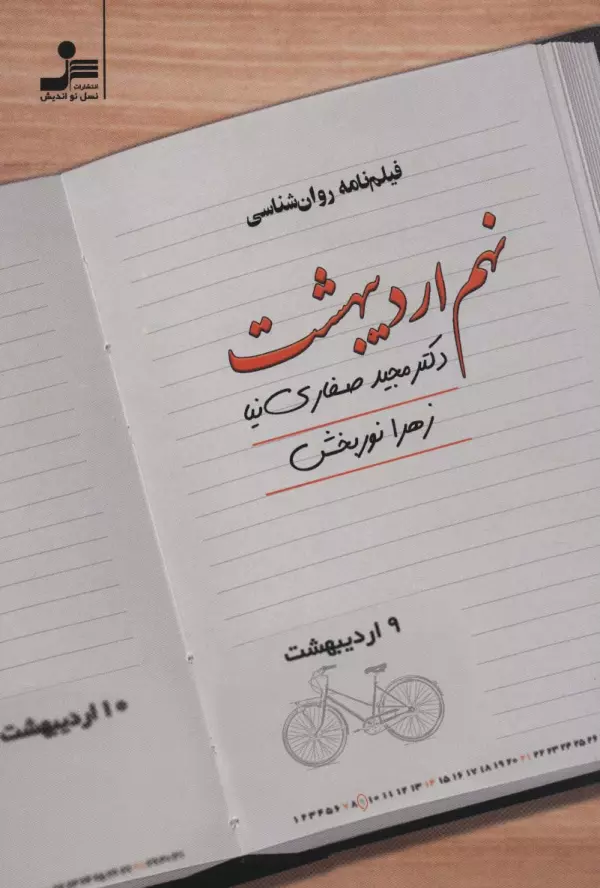 انتشارات
نسل نو اندیش
فیلم‌نامه روان‌شناسی
نهم اردیبهشت
دکتر مجید صفاری‌نیا
زهرا نوربخش
۹ اردیبهشت
۱۰ اردیبهشت
۱ ۲ ۳ ۴ ۵ ۶ ۷ ۸ ۹ ۱۰ ۱۱ ۱۲ ۱۳ ۱۴ ۱۵ ۱۶ ۱۷ ۱۸ ۱۹ ۲۰ ۲۱ ۲۲ ۲۳ ۲۴ ۲۵ ۲۶